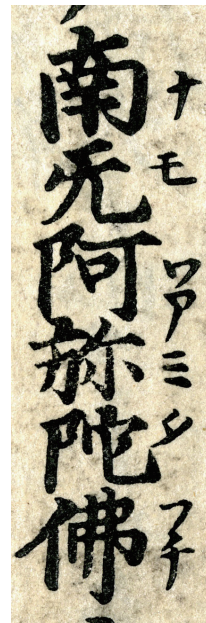 南无阿弥陀佛
ナモワアミタフチ